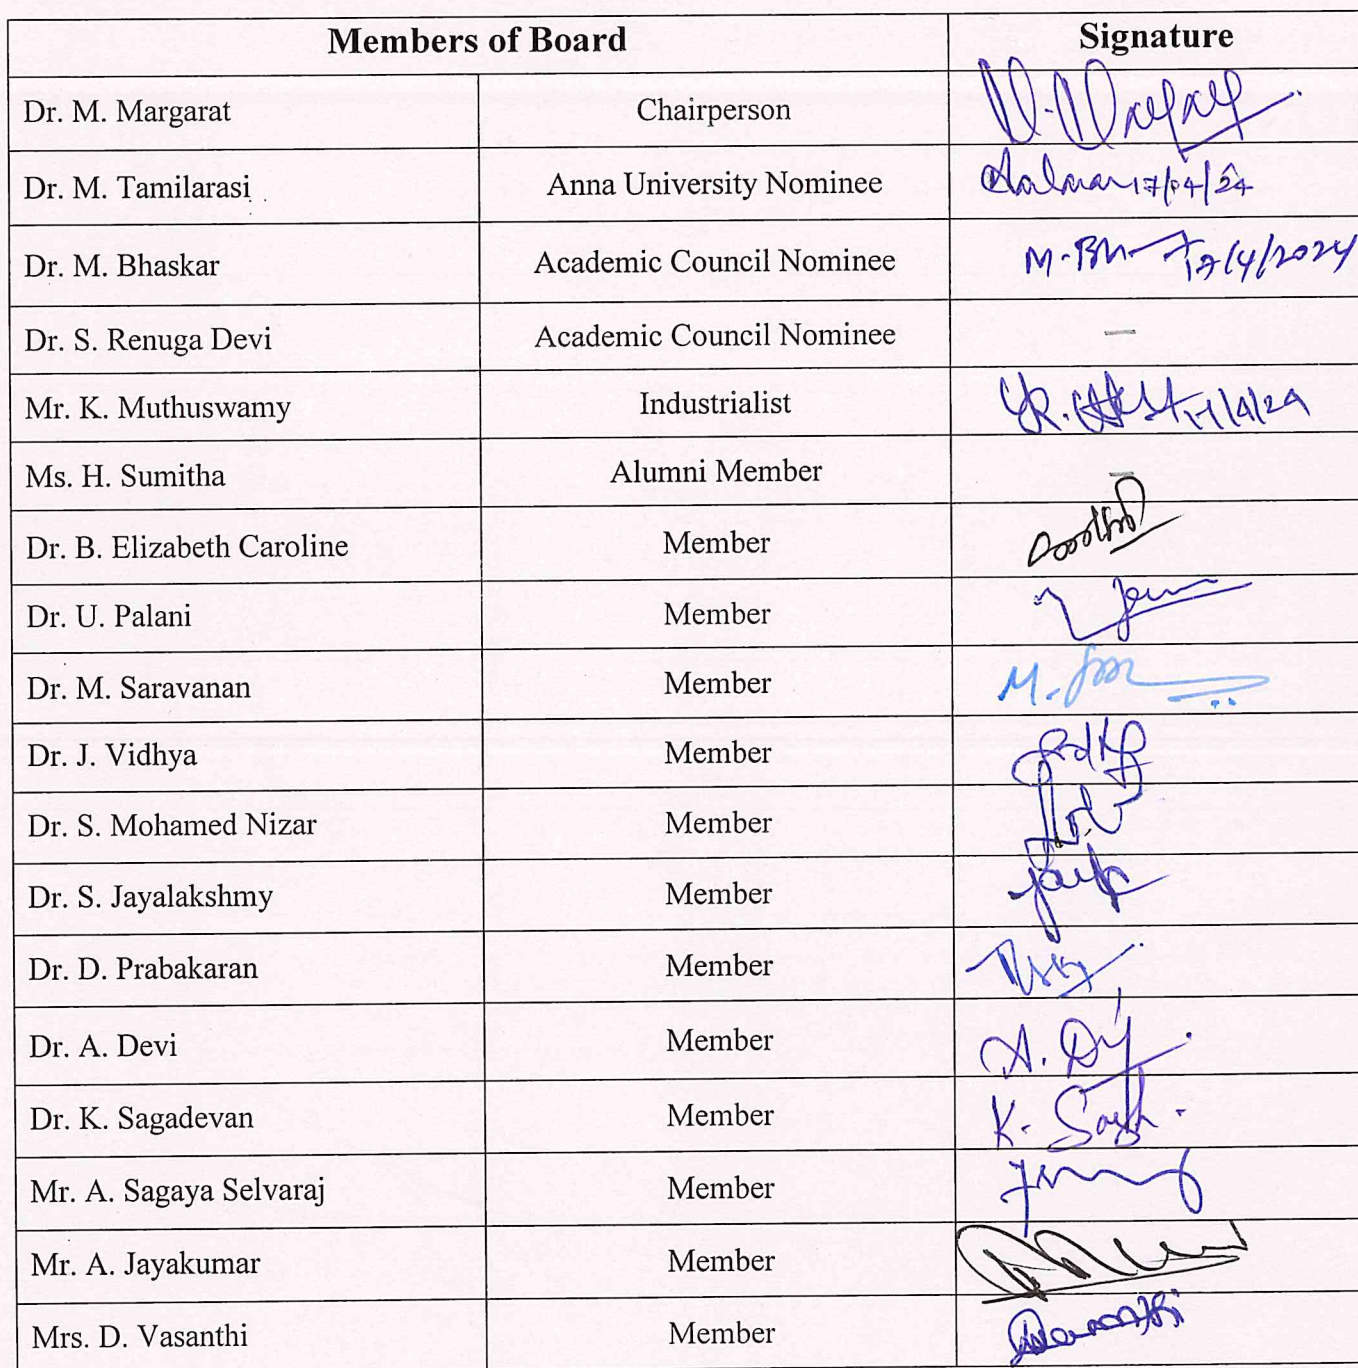 Members of Board Signature
Dr. M. Margarat Chairperson
Dr. M. Tamilarasi Anna University Nominee 17/04/24
Dr. M. Bhaskar Academic Council Nominee 17/4/2024
Dr. S. Renuga Devi Academic Council Nominee —
Mr. K. Muthuswamy Industrialist
Ms. H. Sumitha Alumni Member —
Dr. B. Elizabeth Caroline Member
Dr. U. Palani Member
Dr. M. Saravanan Member
Dr. J. Vidhya Member
Dr. S. Mohamed Nizar Member
Dr. S. Jayalakshmy Member
Dr. D. Prabakaran Member
Dr. A. Devi Member
Dr. K. Sagadevan Member
Mr. A. Sagaya Selvaraj Member
Mr. A. Jayakumar Member
Mrs. D. Vasanthi Member